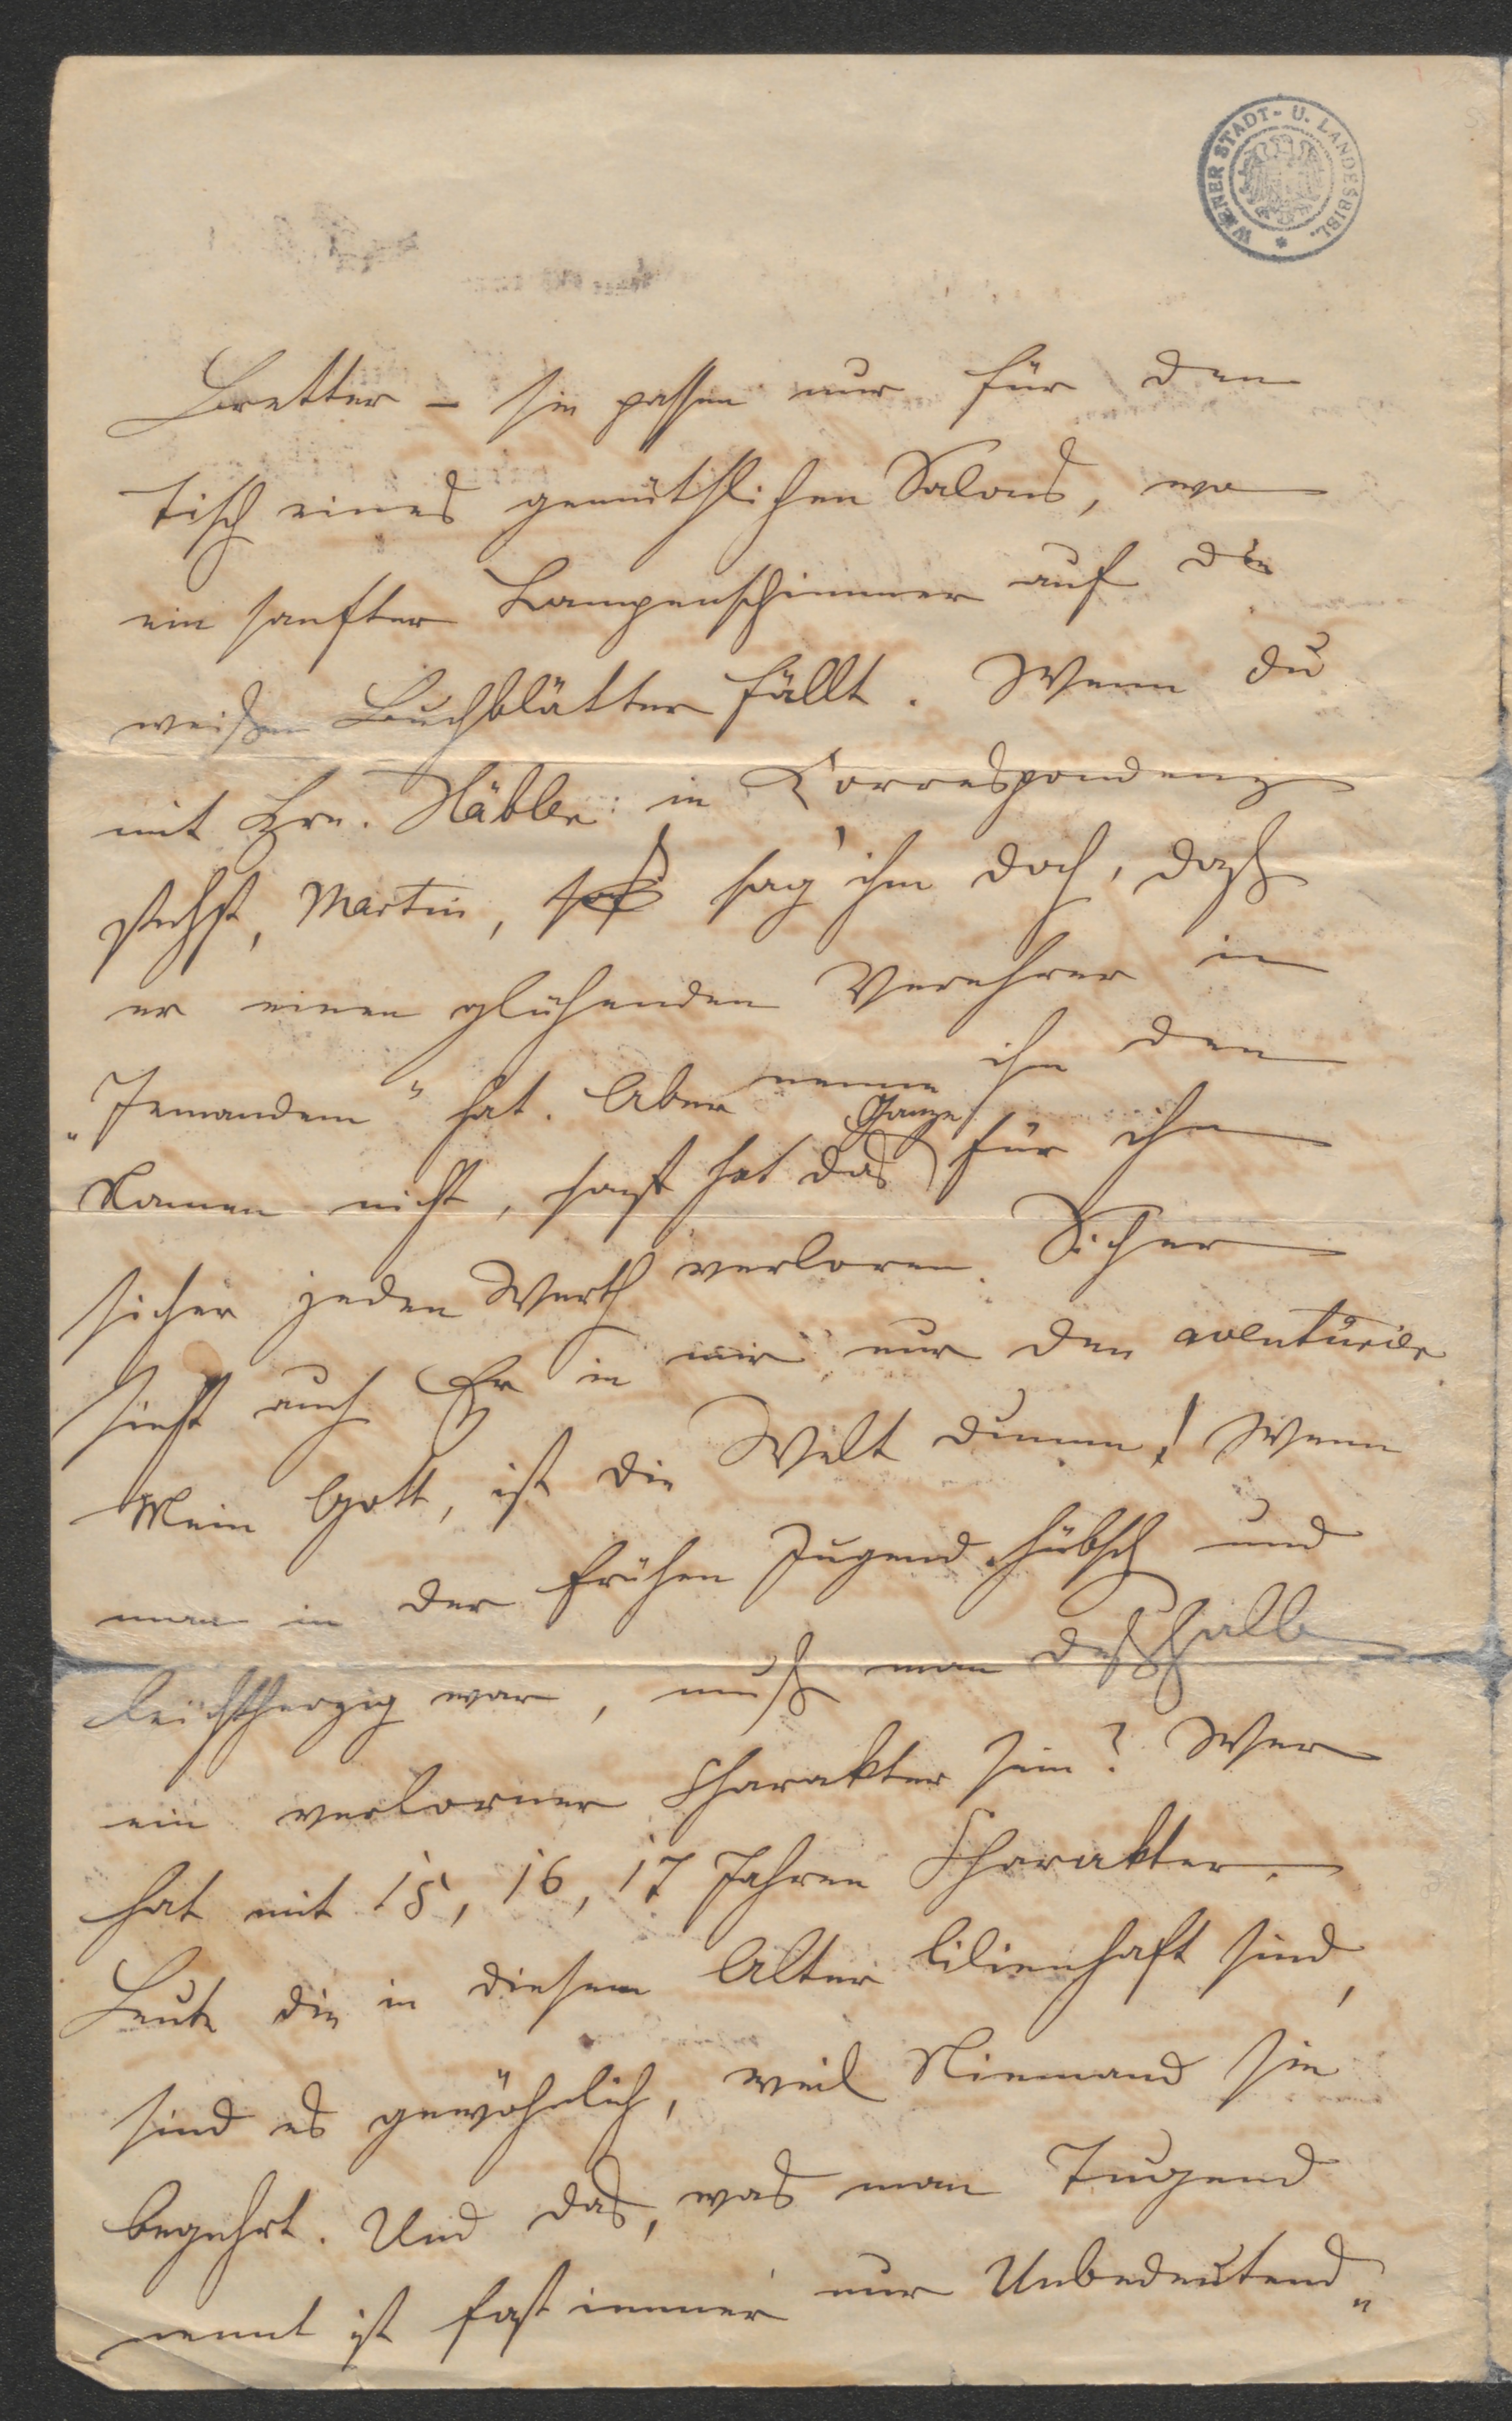 WIENER STADT- U. LANDESBIBL.
Bretter – sie passen nur für den
Tisch eines gemüthlichen Salons, wo
ein sanfter Lampenschimmer auf die
weißen Buchblätter fällt. Wenn du
mit Hrn. Näbble in Correspondenz
stehst, Martin, sag' ihm doch, dass
er einen glühenden Verehrer in
„Jemandem" hat. Aber nenne ihm den
Namen nicht, sonst hat das Ganze für ihn
sicher jeden Werth verloren. Sicher
sieht auch Er in mir nur den aventurier
Mein Gott, ist die Welt dumm! Wenn
man in der frühen Jugend hübsch und
leichtherzig war, muß man deßhalb
ein verlorner Charakter sein? Wer
hat mit 15, 16, 17 Jahren Charakter.
Leute die in diesem Alter lilienhaft sind,
sind es gewöhnlich, weil Niemand sie
begehrt. Und das, was man Tugend
nennt ist fast immer nur Unbedeutend„